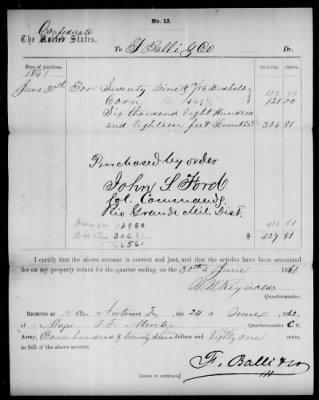 No. 12.
Confederate
The United States,
To F Balli & Co Dr.
Date of purchase. DOLLARS. CENTS.
1861
June 30th For Seventy Nine & 9/56 Bushels
Corn 121 00
Six thousand Eight Hundred
and Eighteen feet Lumber 306 81
Purchased by order
John S. Ford
Col. Commandg
Rio Grande Mil. Dist.
$ 427 81
I certify that the above account is correct and just, and that the articles have been accounted
for on my property return for the quarter ending on the 30th of June 1861.
W. W. Reynolds
Quartermaster.
Received at San Antonio Tx the 24 of June 1862,
of Major T. F. Minter Quartermaster C. S.
Army, Four hundred & twenty Seven dollars and Eighty one cents,
in full of the above account.
F. Balli & Co
[SIGNED IN DUPLICATE.]